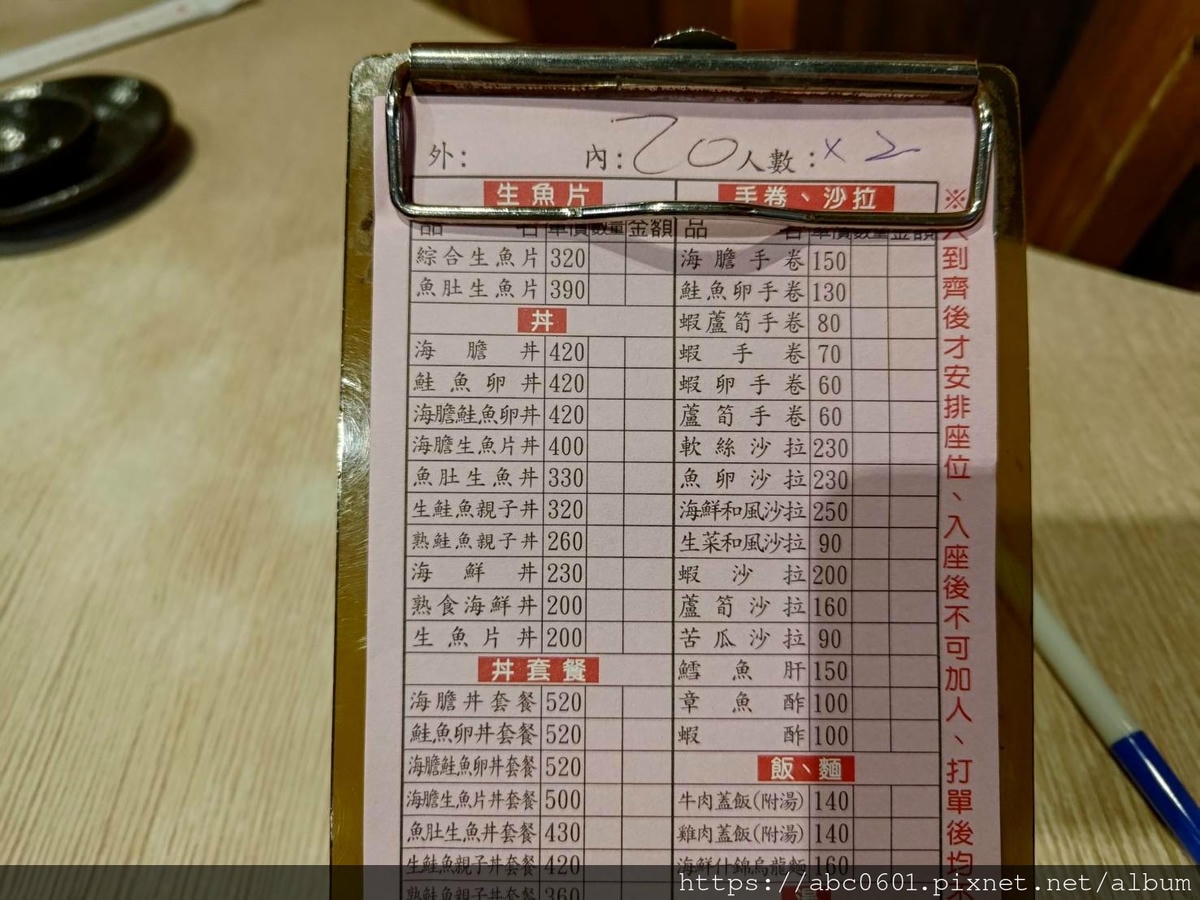 外: 內:20 人數:x 2
生魚片
品 名 單價 數量 金額
綜合生魚片 320
魚肚生魚片 390
丼
海膽丼 420
鮭魚卵丼 420
海膽鮭魚卵丼 420
海膽生魚片丼 400
魚肚生魚丼 330
生鮭魚親子丼 320
熟鮭魚親子丼 260
海鮮丼 230
熟食海鮮丼 200
生魚片丼 200
丼套餐
海膽丼套餐 520
鮭魚卵丼套餐 520
海膽鮭魚卵丼套餐 520
海膽生魚片丼套餐 500
魚肚生魚丼套餐 430
生鮭魚親子丼套餐 420
熟鮭魚親子丼套餐 360
手卷、沙拉
品 名 單價 數量 金額
海膽手卷 150
鮭魚卵手卷 130
蝦蘆筍手卷 80
蝦手卷 70
蝦卵手卷 60
蘆筍手卷 60
軟絲沙拉 230
魚卵沙拉 230
海鮮和風沙拉 250
生菜和風沙拉 90
蝦沙拉 200
蘆筍沙拉 160
苦瓜沙拉 90
鱈魚肝 150
章魚酢 100
蝦酢 100
飯、麵
牛肉蓋飯(附湯) 140
雞肉蓋飯(附湯) 140
海鮮什錦烏龍麵 160
※人到齊後才安排座位、入座後不可加人、打單後均不
https://abc0601.pixnet.net/album